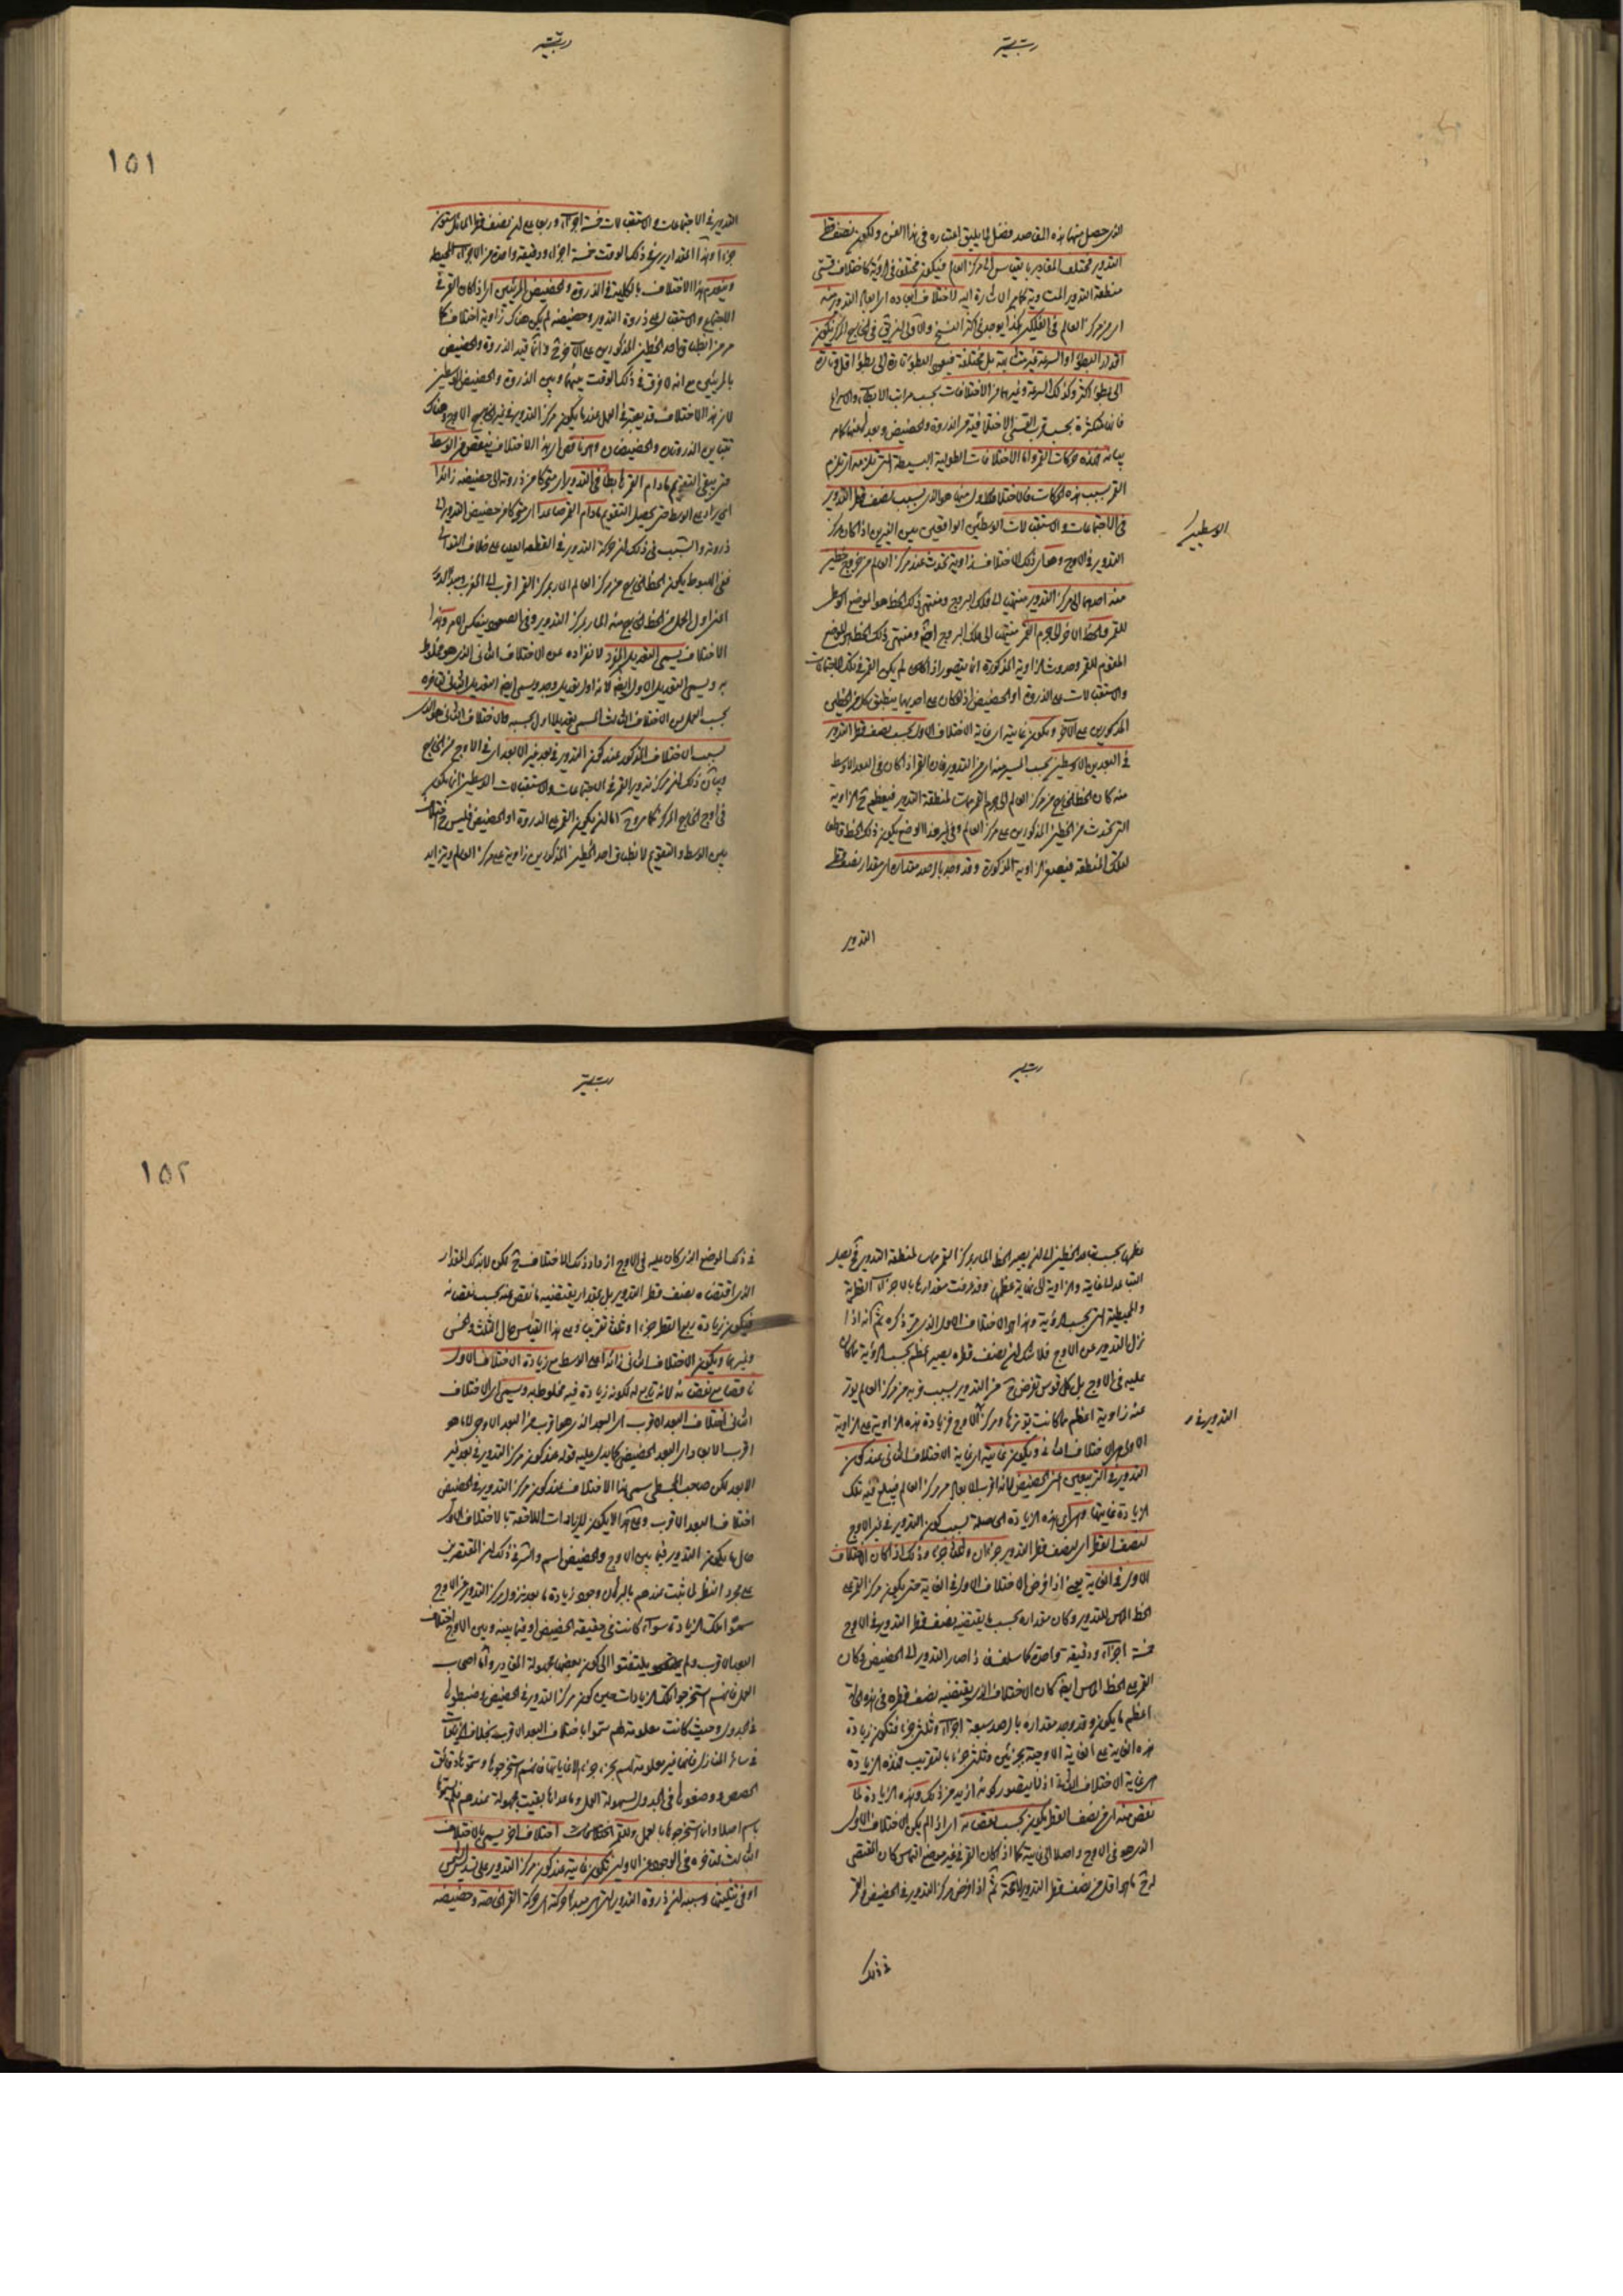 الذي حصل منها هذه المقاصد فضل لا يليق اعتباره في هذا الفن ولكون نصف قطر
التدوير مختلف المقادير بالقياس الى مركز العالم فيكون مختلف في الرؤية كاختلاف قسي
منطقة التدوير المتساوية كما مر الاشارة اليه لاختلاف ابعاده اي ابعاد التدوير منه
اي من مركز العالم في الفلكين هكذا يوجد في اكثر النسخ والاولى ان يق في الخارج المركز يكون
اقدار البطؤ او السرعة غير متشابهة بل مختلفة فيعود البطؤ تارة الى بطؤ اقل وتارة
الى بطؤ اكثر وكذلك السرعة وغيرهما من الاختلافات بحسب مراتب الابطاء والاسراع
فانها متكثرة بحسب قرب القسي الاختلافية من الذروة والحضيض وبعدها عنهما كما مر
بيانه فهذه حركات القمر واما الاختلافات الطولية البسيطة التي تلزمه اي تلزم
القمر بسبب هذه الحركات فالاختلاف الاول منها هو الذي بسبب نصف قطر التدوير
في الاجتماعات والاستقبالات الوسطيين الواقعين بين النيرين اذا كان مركز
الوسطيين
التدوير في الاوج وهاي ذلك الاختلاف زاوية تحدث عند مركز العالم من خروج خطين
منه احدهما الى مركز التدوير منتهيا الى فلك البروج ومنتهى ذلك الخط هو الموضع الوسط
للقمر والخط الاخر الى جرم القمر منتهيا الى فلك البروج ايضا ومنتهى ذلك الخط هو الموضع
المقوم للقمر وحدوث الزاوية المذكورة انما يتصور اذا كان لم يكن القمر في تلك الاجتماعات
والاستقبالات على الذروة او الحضيض اذ لو كان على احديهما ينطبق كل من الخطين
المذكورين على الآخر ويكون غايته اي غاية الاختلاف الاول بحسب نصف قطر التدوير
في البعدين الاوسطين بحسب المسير منه اي من التدوير فان القمر اذا كان في البعد الاوسط
منه كان الخط الخارج من مركز العالم الى جرم القمر مماسا لمنطقة التدوير فيعظم ح الزاوية
التي تحدث من الخطين المذكورين على مركز العالم وفي غير هذا الوضع يكون ذلك الخط قاطعا
لتلك المنطقة فيصغر الزاوية المذكورة وقد وجد بالرصد مقداره اي مقدار نصف قطر
التدوير
١٥١
التدوير في الاجتماعات والاستقبالات خمسة اجزاء وربعا على ان نصف قطر المائل ستون
جزءا وهذا المقدار يرى في ذلك الوقت خمسة اجزاء ودقيقة واحدة من الاجزاء المحيطية
وينعدم هذا الاختلاف بالكلية في الذروة والحضيض المرئيين اي اذا كان القمر في
الاجتماع والاستقبال على ذروة التدوير وحضيضه لم يكن هناك زاوية اختلاف كما
مر من انطباق احد الخطين المذكورين على الآخر ح وانما قيد الذروة والحضيض
بالمرئيين مع انه لا فرق في ذلك الوقت بينهما وبين الذروة والحضيض الوسطين
لان هذا الاختلاف قد يعتبر في العمل عندما يكون مركز التدوير في غير الاوج وهناك
تتباين الذروتان والحضيضان وهو ناقص اي هذا الاختلاف ينقص من الوسط
حتى يبقى التقويم مادام القمر هابطا في التدوير اي متحركا من ذروته الى حضيضه زائدا
اي يزاد على الوسط حتى يحصل التقويم مادام القمر صاعدا اي متحركا من حضيض التدوير الى
ذروته والسبب في ذلك ان حركة التدوير في القطعة العليا على خلاف التوالي
ففي الهبوط يكون الخط الخارج من مركز العالم المار بمركز القمر اقرب الى المغرب ومبدأ الحركة
اعني اول الحمل من الخط الخارج منه المار بمركز التدوير وفي الصعود ينعكس الامر وهذا
الاختلاف يسمى التعديل المفرد لانفراده عن الاختلاف الثاني الذي هو مخلوط
به ويسمى التعديل الاول ايضا لانه اول تعديل وجد ويسمى ايضا التعديل الثاني لتاخره
بحسب العمل عن الاختلاف الثالث المسمى تعديلا اول بحسبه والاختلاف الثاني هو الذي
بسبب الاختلاف المذكور عند كون التدوير في بعد غير الابعد اي في الاوج من الخارج
وبيان ذلك ان مركز تدوير القمر في الاجتماعات والاستقبالات الوسطين انما يكون
في اوج الخارج المركز كما مر وح اما ان يكون القمر على الذروة او الحضيض فليس ح اختلاف
بين الوسط والتقويم لانطباق احد الخطين المذكورين زاوية على مركز العالم ويتزايد
عظمها بحسب تباعد الخطين الى ان يصير الخط المار بمركز القمر مماسا لمنطقة التدوير فح يصل
التباعد الى الغاية والزاوية الى نهاية عظمها وقد عرفت مقدارها بالاجزاء القطرية
والمحيطية التي بحسب الرؤية وهذا هو الاختلاف الاول الذي مر ذكره ثم انه اذا
نزل التدوير عن الاوج فلا شك ان نصف قطره يصير اعظم بحسب الرؤية مما كان
عليه في الاوج بل كل قوس تفرض ح من التدوير بسبب قربه من مركز العالم يوتر
عنده زاوية اعظم مما كانت يوترها ومركزه الاوج فزيادة هذه الزاوية على الزاوية
التدوير في
الاولى هي الاختلاف الثاني ويكون غايته اي غاية الاختلاف الثاني عند كون
التدوير في التربيعين اعني الحضيض لانه اقرب الابعاد من مركز العالم فيبلغ فيه تلك
الزيادة غايتها وهي اي هذه الزيادة الحاصلة بسبب كون التدوير في غير الاوج
لنصف القطر اي لنصف قطر التدوير جزءان وثلثا جزء وذلك اذا كان الاختلاف
الاول في الغاية يعني اذا فرض الاختلاف الاول في الغاية حتى يكون مركز القمر على
الخط المماس للتدوير وكان مقداره بحسب ما يقتضيه نصف قطر التدوير في الاوج
خمسة اجزاء ودقيقة واحدة كما سلف فاذا صار التدوير الى الحضيض وكان
القمر على الخط المماس ايضا كان الاختلاف الذي يقتضيه نصف قطره في هذه الحالة
اعظم ما يكون وقد وجد مقداره بالرصد سبعة اجزاء وثلثي جزء فتكون زيادة
هذه الغاية على الغاية الاوجية بجزئين وثلثي جزء بالتقريب فهذه الزيادة
هي غاية الاختلاف الثاني اذ لا يتصور كونه ازيد من ذلك وهذه الزيادة لما
نقص منه اي من نصف القطر يكون بحسب نقصانه اي اذا لم يكن الاختلاف الاول
الذي هو في الاوج واصلا الى غايته كما اذا كان القمر في غير موضع التماس كان المقتضي
له ح ما هو اقل من نصف قطر التدوير لا محالة ثم اذا فرض مركز التدوير في الحضيض والقمر
في ذلك
١٥٢
في ذلك الموضع الذي كان عليه في الاوج ازداد ذلك الاختلاف ح لكن لا بذلك المقدار
الذي اقتضاه نصف قطر التدوير بل بمقدار يقتضيه ما نقص عنه بحسب نقصانه
فيكون زيادة ربع القطر جزءا وثلثا تقريبا وعلى هذا القياس حال الثلث والخمس
وغيرهما ويكون الاختلاف الثاني زائدا على الوسط مع زيادة الاختلاف الاول
ناقصا مع نقصانه لانه تابع له لكونه زيادة فيه مخلوطة به ويسمى اي الاختلاف
الثاني اختلاف البعد الاقرب اي البعد الذي هو اقرب من البعد الاوجي لا ما هو
اقرب الابعاد اي البعد الحضيضي كما يدل عليه قوله عند كون مركز التدوير في بعد غير
الابعد لكن صاحب المجسطي سمى هذا الاختلاف عند كون مركز التدوير في الحضيض
اختلاف البعد الاقرب وعلى هذا لا يكون للزيادات اللاحقة بالاختلاف الاول
حال ما يكون التدوير فيما بين الاوج والحضيض اسم والسر في ذلك ان المقتصرين
على مجرد النظر لما ثبت عندهم بالبرهان وجود زيادة ما بعد نزول مركز التدوير عن الاوج
سموا تلك الزيادة سواء كانت في حقيقة الحضيض او فيما بينه وبين الاوج اختلاف
البعد الاقرب ولم يلتفتوا الى كون بعضها مجهولة المقادير واما اصحاب
العمل فانهم استخرجوا تلك الزيادات حين كون مركز التدوير في الحضيض وضبطوها
في الجدول وحيث كانت معلومة لهم سموها باختلاف البعد الاقرب بخلاف الزيادات
في سائر المنازل فانها غير معلومة لهم بجزء جزء الا غاياتها فانهم استخرجوها وسموها دقائق
الحصص ووضعوها في الجدول لسهولة العمل وما عداها بقيت مجهولة عندهم فلم يسموها
باسم اصلا وان استخرجوها بالعمل وللقمر اختلاف آخر يسمى بالاختلاف
الثالث لتاخره في الوجود عن الاولين تكون غايته عند كون مركز التدوير على تسديس الشمس
او في تثليثها وسببه ان ذروة التدوير التي هي مبدأ حركته اي حركة القمر الخاصة وحضيضه